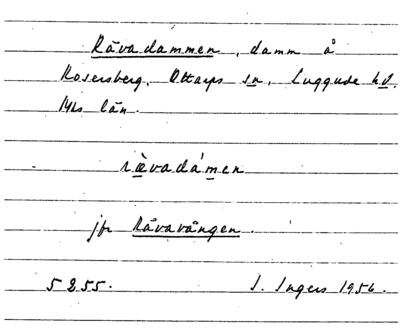 Råvadammen, damm å
Rosersberg, Ottarps sn, Luggude hd,
Mhs län.
rævadámen
jfr Råvavången.
5255. I. Ingers 1956.